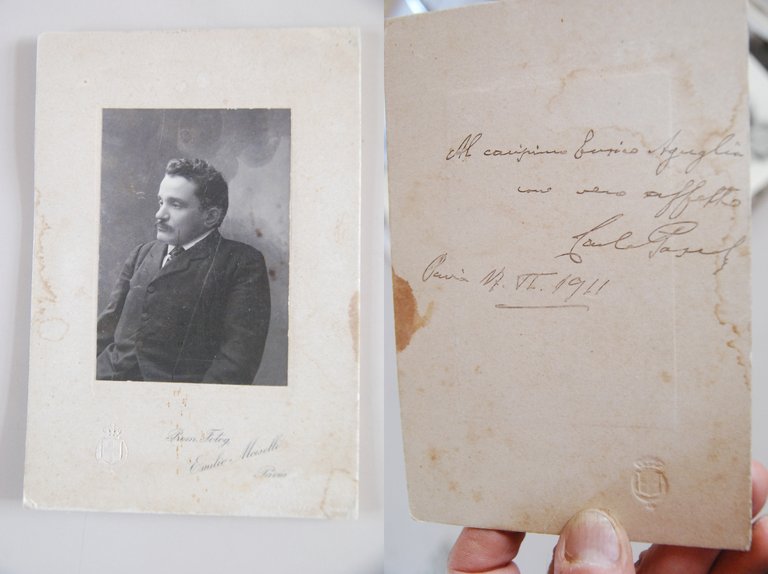 Prem. Fotog.
Emilio Moisello
Pavia
Al carissimo Enrico Aguglia
con vero affetto
Carlo
Pavia 17. VI. 1911